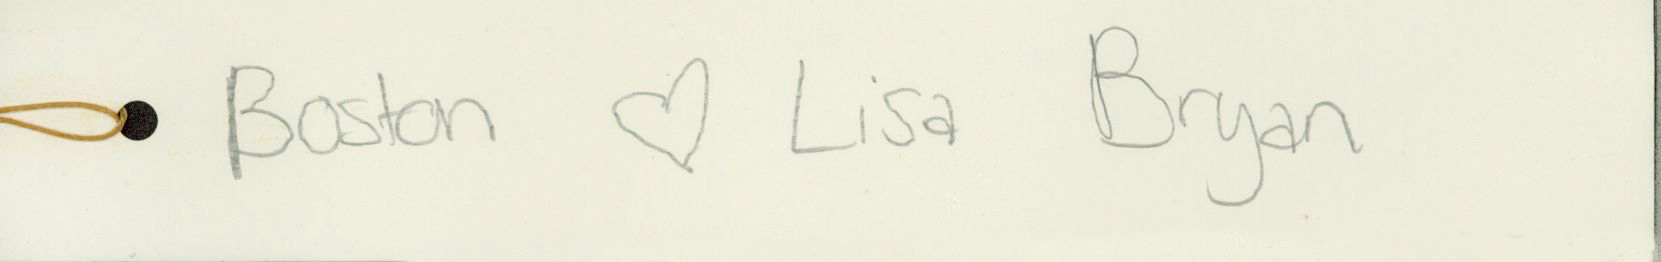 Boston ♡ Lisa Bryan